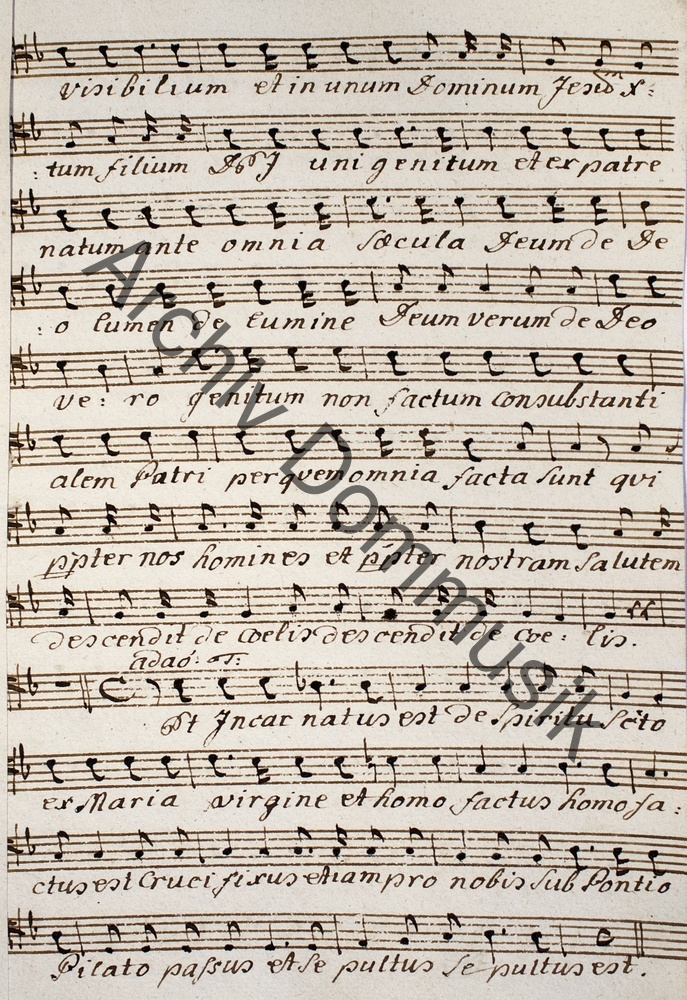 visibilium et in unum Dominum Jesum X:
:tum filium DEJ uni genitum et ex patre
natum ante omnia sæcula Deum de De
:o lumen de lumine Deum verum de Deo
ve: ro genitum non factum Consubstanti
alem Patri per quem omnia facta sunt qui
ppter nos homines et ppter nostram salutem
descendit de coelis descendit de coe: lis.
adaó: T:
Et Incarnatus est de Spiritu Scto
ex Maria virgine et homo factus homo fa:
ctus est Cruci fixus etiam pro nobis sub Pontio
Pilato passus et se pultus se pultus est.
Archiv Dommusik